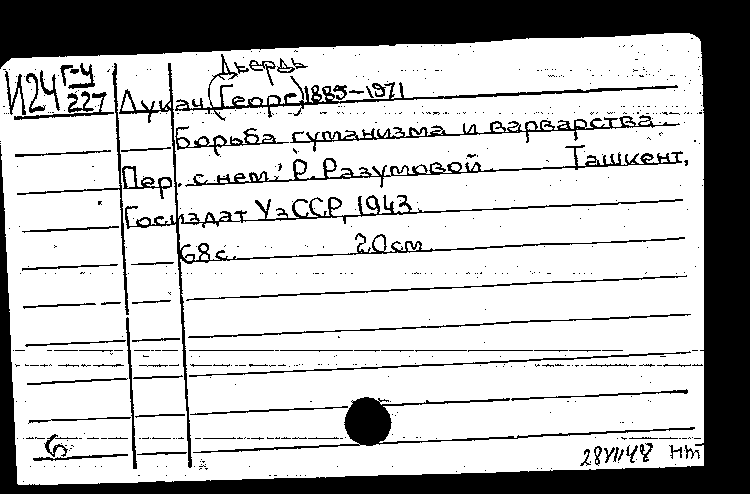 Дьердь
И24 Г-4
227 Лукач, (Георг) 1885-1971
Борьба гуманизма и варварства.
Пер. с нем. Р. Разумовой. Ташкент,
Госиздат УзССР, 1943.
68 с. 20 см.
6